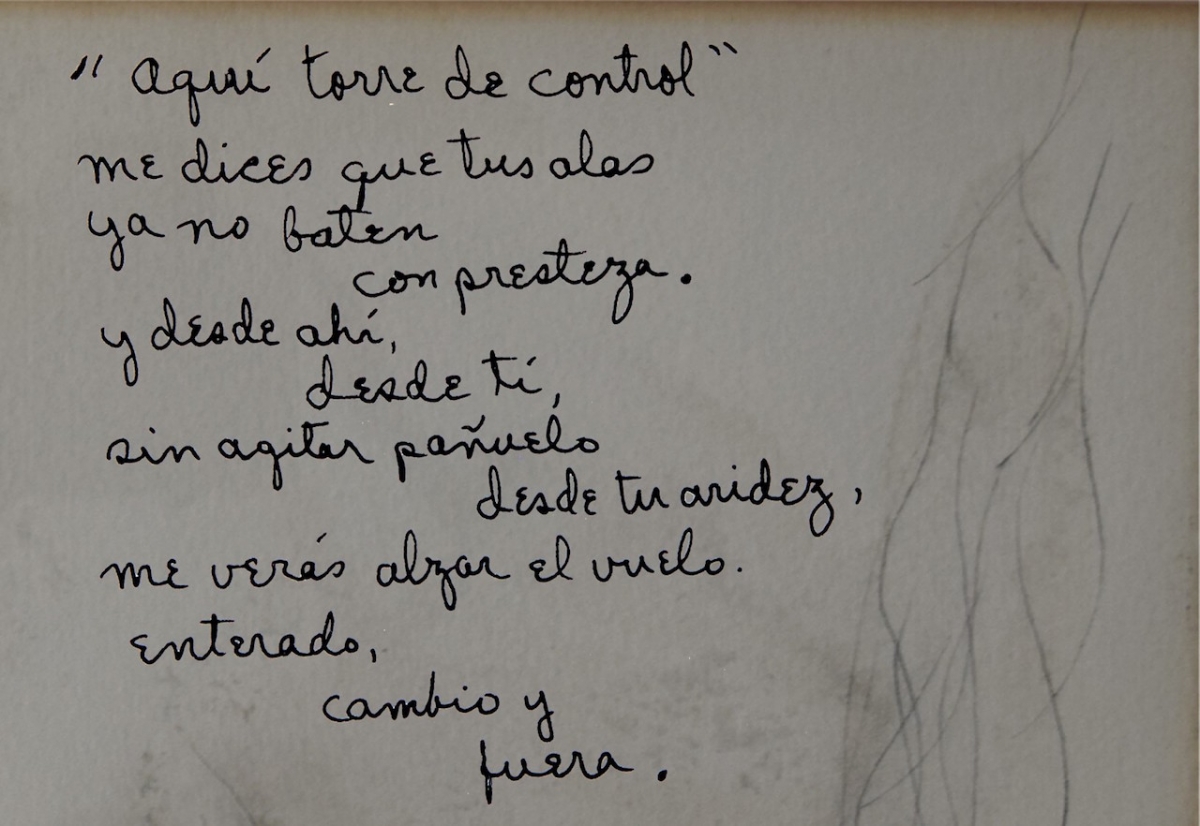 "Aquí torre de control"
me dices que tus alas
ya no baten
con presteza.
y desde ahí,
desde tí,
sin agitar pañuelo
desde tu aridez,
me verás alzar el vuelo.
enterado,
cambio y
fuera.